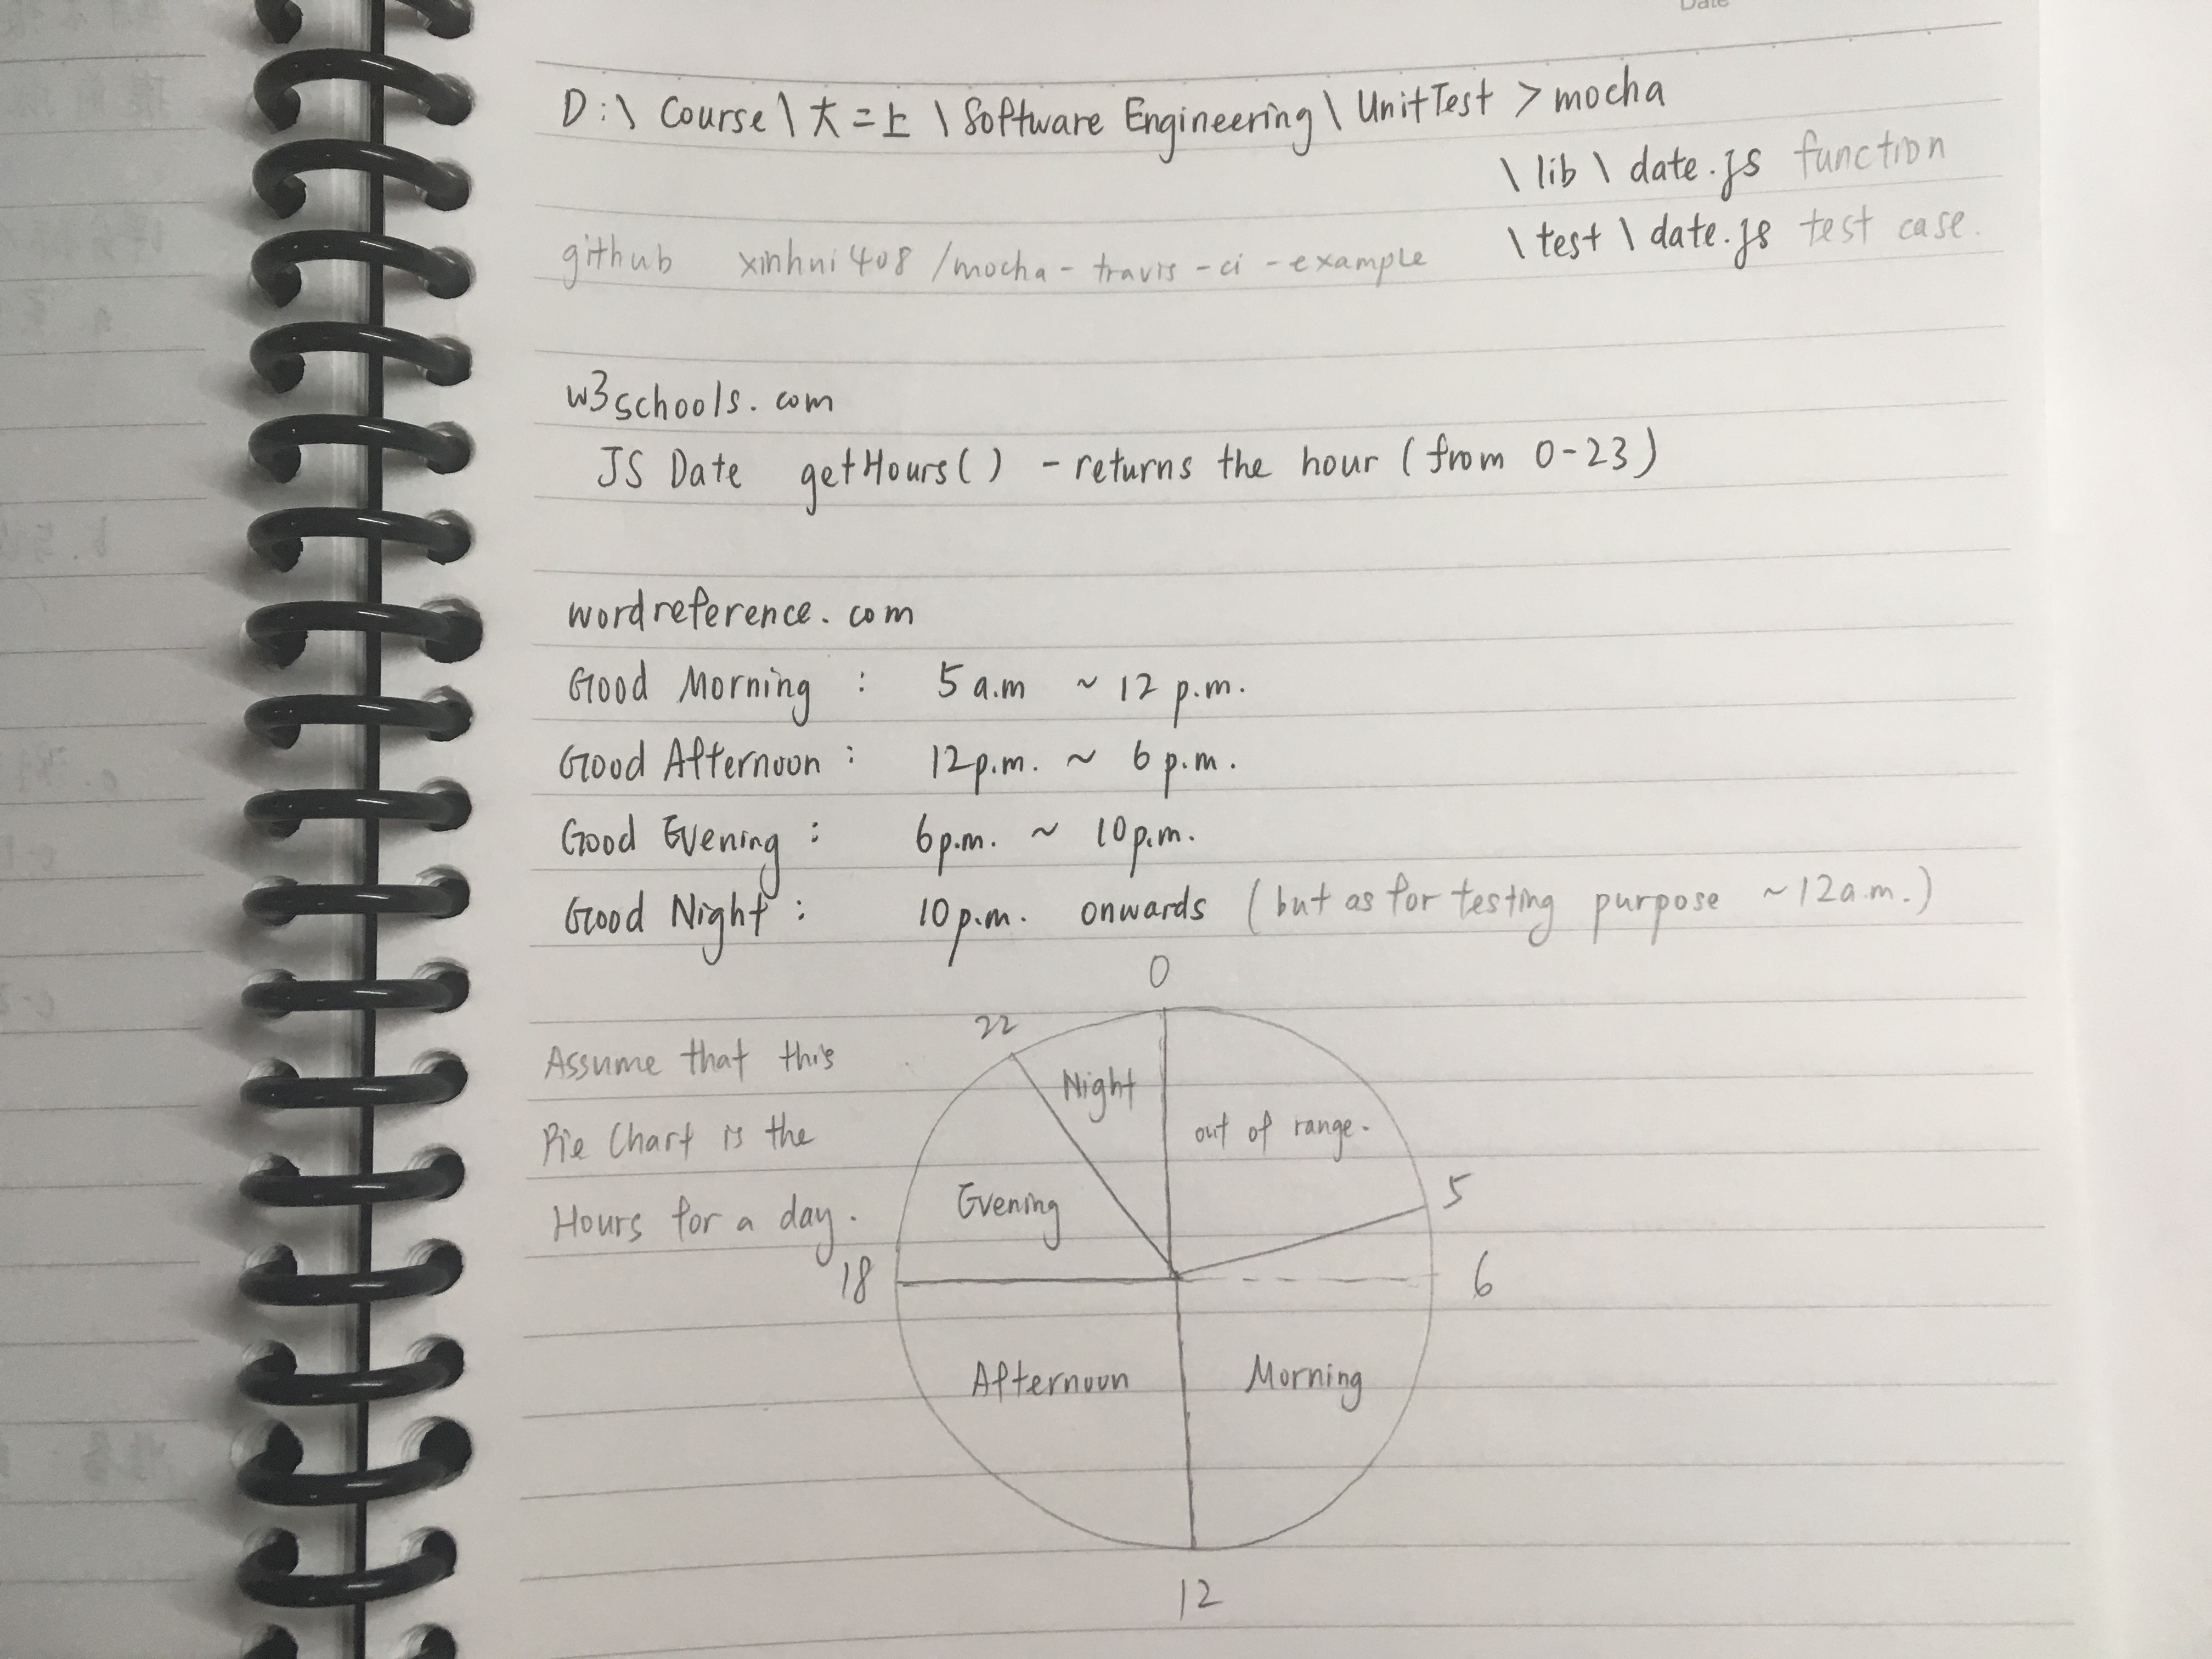 Date
D:\ Course \ 大二上 \ Software Engineering \ UnitTest > mocha
\ lib \ date.js function
github xinhui408 /mocha-travis-ci-example \ test \ date.js test case.
w3schools.com
JS Date getHours() - returns the hour (from 0-23)
wordreference.com
Good Morning : 5 a.m ~ 12 p.m.
Good Afternoon : 12p.m. ~ 6 p.m.
Good Evening : 6p.m. ~ 10p.m.
Good Night : 10p.m. onwards (but as for testing purpose ~12a.m.)
Assume that this
Pie Chart is the
Hours for a day.
0
22
Night
out of range.
5
Evening
18
6
Afternoon
Morning
12